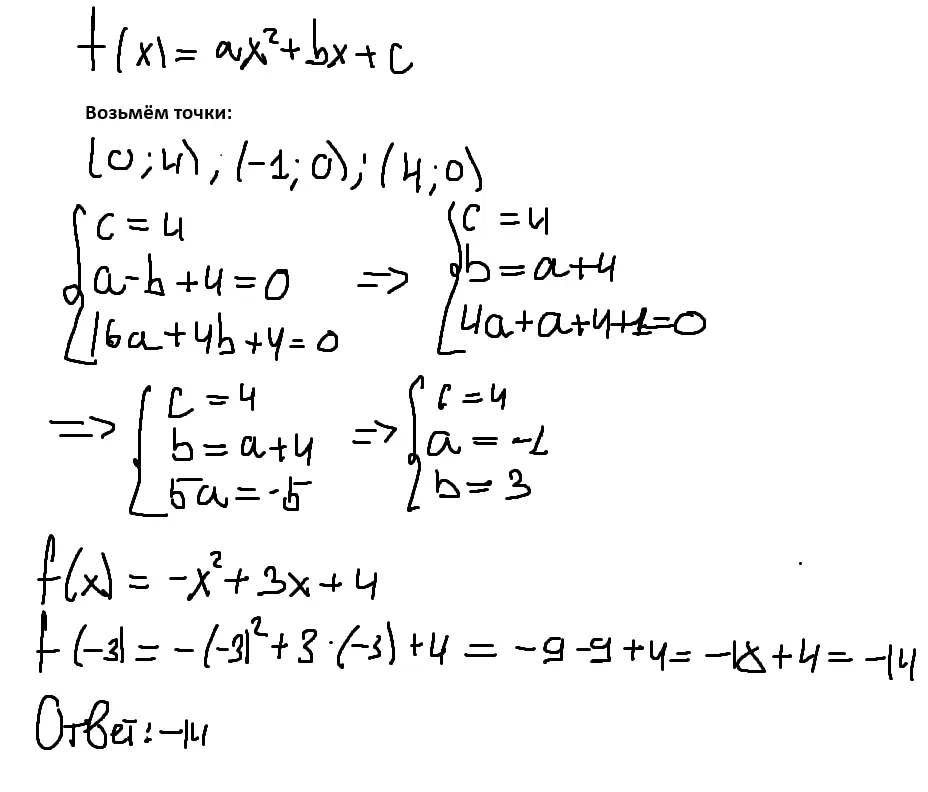 f(x) = ax²+bx+c
Возьмём точки:
(0;4), (-1;0); (4;0)
{ c = 4 { c = 4
a-b+4=0 => b = a+4
16a+4b+4=0 4a+a+4+1=0
=> { c = 4 => { c = 4
b = a+4 a = -1
5a = -5 b = 3
f(x) = -x²+3x+4
f(-3) = -(-3)²+3·(-3)+4 = -9-9+4 = -18+4 = -14
Ответ: -14